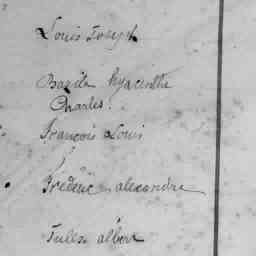 Louis Joseph
Bazile hyacinthe
Charles.
francois Louis
frederic alexandre
Jules albert